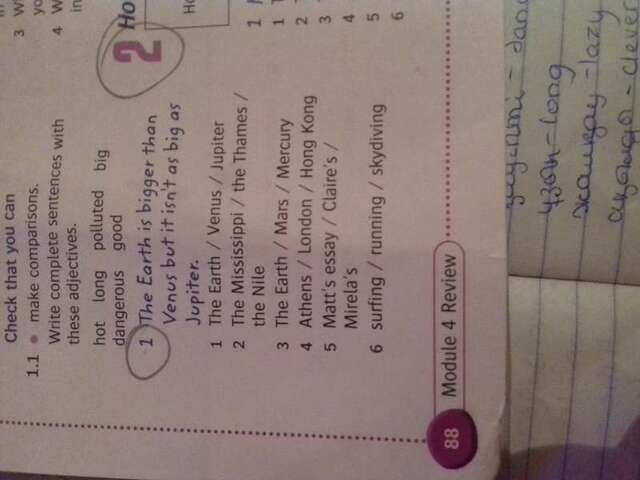 Check that you can
1.1 • make comparisons.
Write complete sentences with
these adjectives.
hot long polluted big
dangerous good
1 The Earth is bigger than
Venus but it isn't as big as
Jupiter.
1 The Earth / Venus / Jupiter
2 The Mississippi / the Thames /
the Nile
3 The Earth / Mars / Mercury
4 Athens / London / Hong Kong
5 Matt's essay / Claire's /
Mirela's
6 surfing / running / skydiving
88 Module 4 Review
3
4
in
2 Ho
1
1
2
3
4
5
6
ұзын – long
жалқау – lazy
ақылды – clever